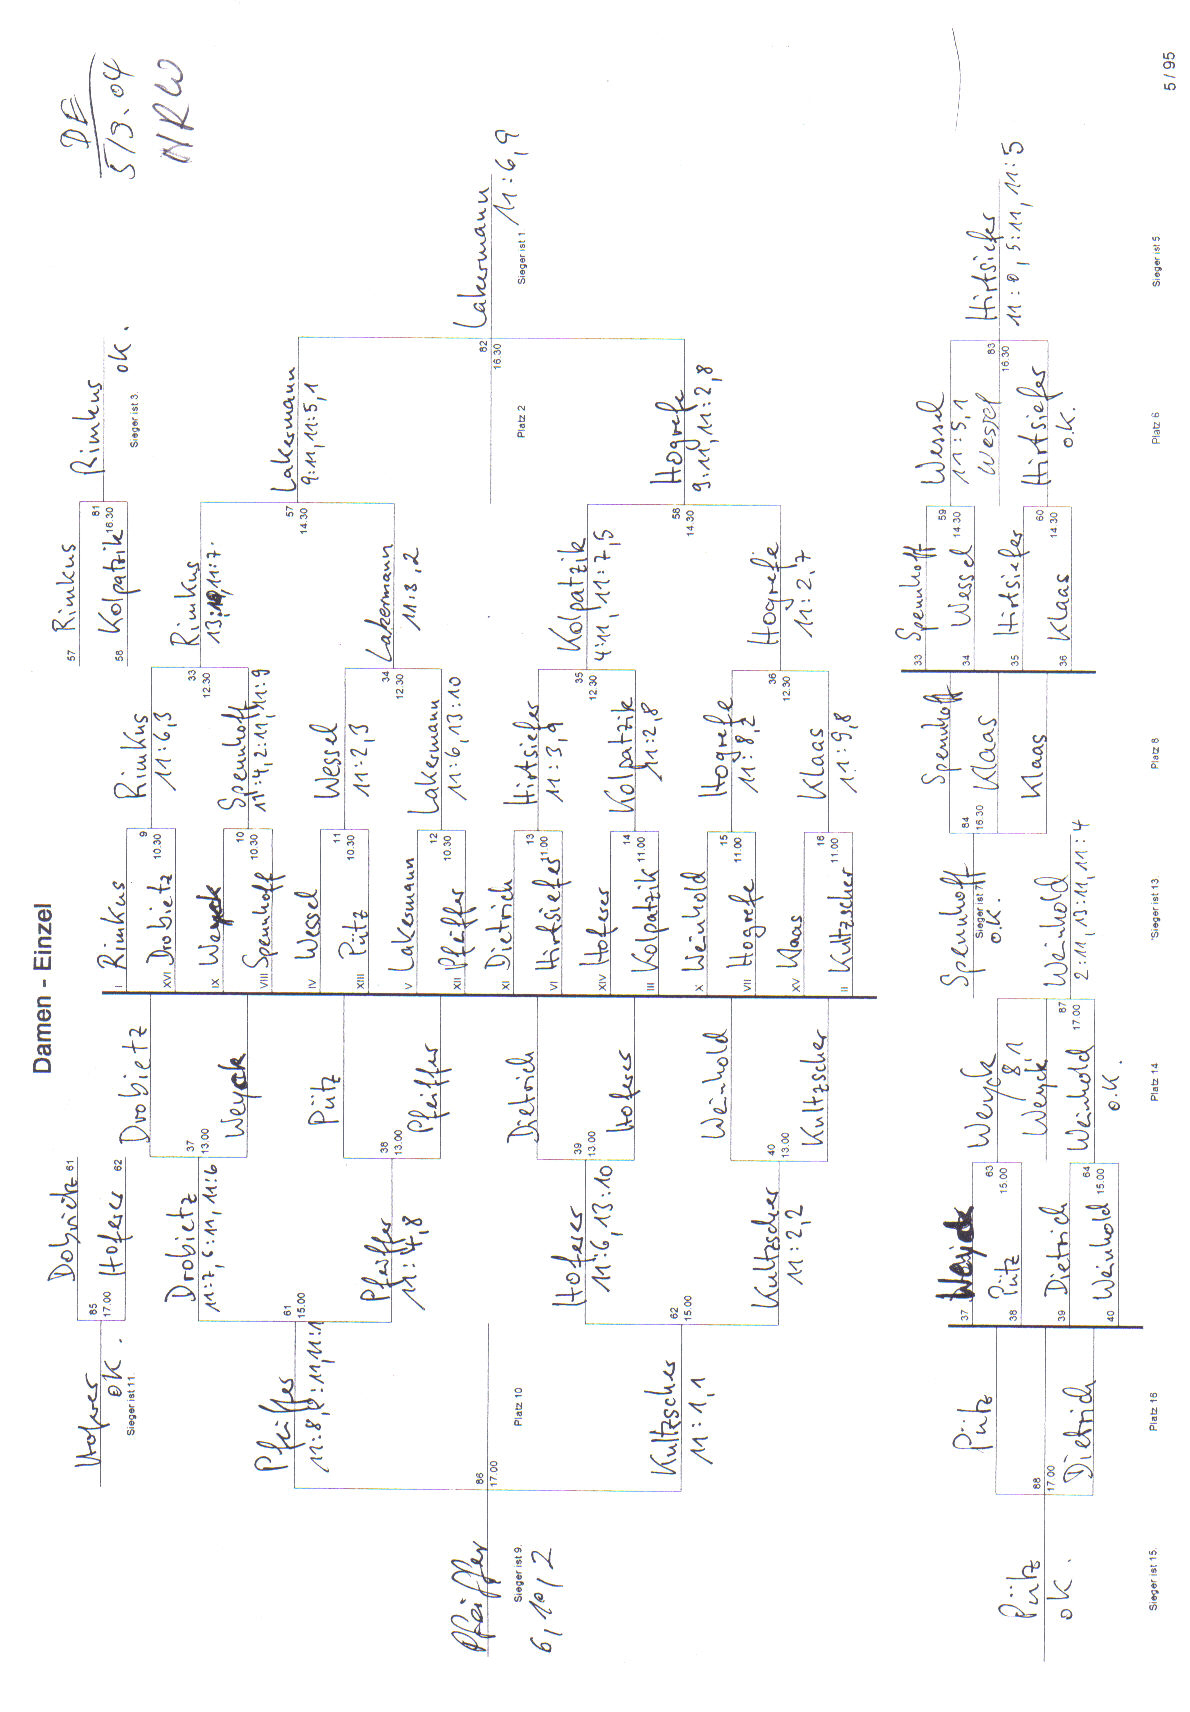 DE
5/3.04
NRW
Damen - Einzel
5 / 95
Dobrietz 61
Hoferer 62
85
17.00
Hoferer
OK.
Sieger ist 11.
57 Rimkus
58 Kolpatzik
81
16.30
Rimkus
OK.
Sieger ist 3.
I Rimkus
XVI Drobietz
9
10.30
IX Weyck
VIII Spennhoff
10
10.30
IV Wessel
XIII Pütz
11
10.30
V Lakermann
XII Pfeiffer
12
10.30
XI Dietrich
VI Hirtsiefer
13
11.00
XIV Hoferer
III Kolpatzik
14
11.00
X Weinhold
VII Hogrefe
15
11.00
XV Klaas
II Kultzscher
16
11.00
Rimkus
11:6,3
Spennhoff
11:4, 2:11, 11:9
33
12.30
Wessel
11:2,3
Lakermann
11:6, 13:10
34
12.30
Hirtsiefer
11:3,9
Kolpatzik
11:2,8
35
12.30
Hogrefe
11:8,2
Klaas
11:9,8
36
12.30
Rimkus
Lakermann
11:3,2
57
14.30
Kolpatzik
4:11, 11:7,5
Hogrefe
11:2,7
58
14.30
Lakermann
9:11, 11:5,1
Hogrefe
9:11, 11:2,8
82
16.30
Platz 2
Lakermann
11:6,9
Sieger ist 1
Drobietz
Weyck
37
13.00
Pütz
Pfeiffer
38
13.00
Dietrich
Hoferer
39
13.00
Weinhold
Kultzscher
40
13.00
Drobietz
11:7, 6:11, 11:6
Pfeiffer
11:4,8
61
15.00
Hoferer
11:6, 13:10
Kultzscher
11:2,2
62
15.00
Pfeiffer
Kultzscher
11:1,1
86
17.00
Platz 10
Pfeiffer
Sieger ist 9.
6,10,2
33 Spennhoff
34 Wessel
59
14.30
35 Hirtsiefer
36 Klaas
60
14.30
Wessel
11:5,1
Wessel
Hirtsiefer
o.K.
83
16.30
Platz 6
Hirtsiefer
11:8, 5:11, 11:5
Sieger ist 5
Spennhoff
Klaas
Klaas
84
16.30
Platz 8
Spennhoff
Sieger ist 7
o.K.
37 Weyck
38 Pütz
63
15.00
39 Dietrich
40 Weinhold
64
15.00
Weyck
8,1
Weyck
Weinhold
o.K.
87
17.00
Platz 14
Weinhold
2:11, 13:11, 11:4
Sieger ist 13
Pütz
Dietrich
88
17.00
Platz 16
Pütz
OK.
Sieger ist 15.